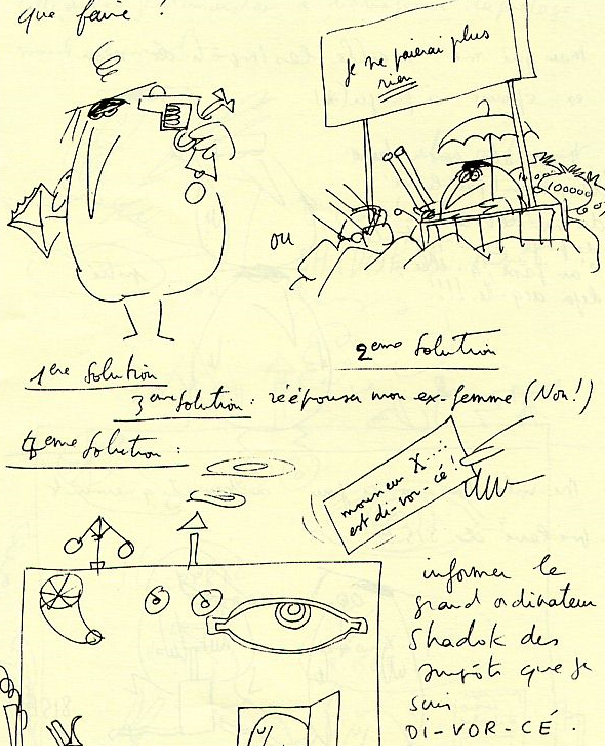 que faire ?
je ne paierai plus
rien
100000
ou
1ere solution
2eme solution
3eme solution : réépouser mon ex-femme (Non!)
4eme solution :
monsieur X....
est di-vor-cé !
informer le
grand ordinateur
Shadok des
impôts que je
suis
DI-VOR-CÉ.